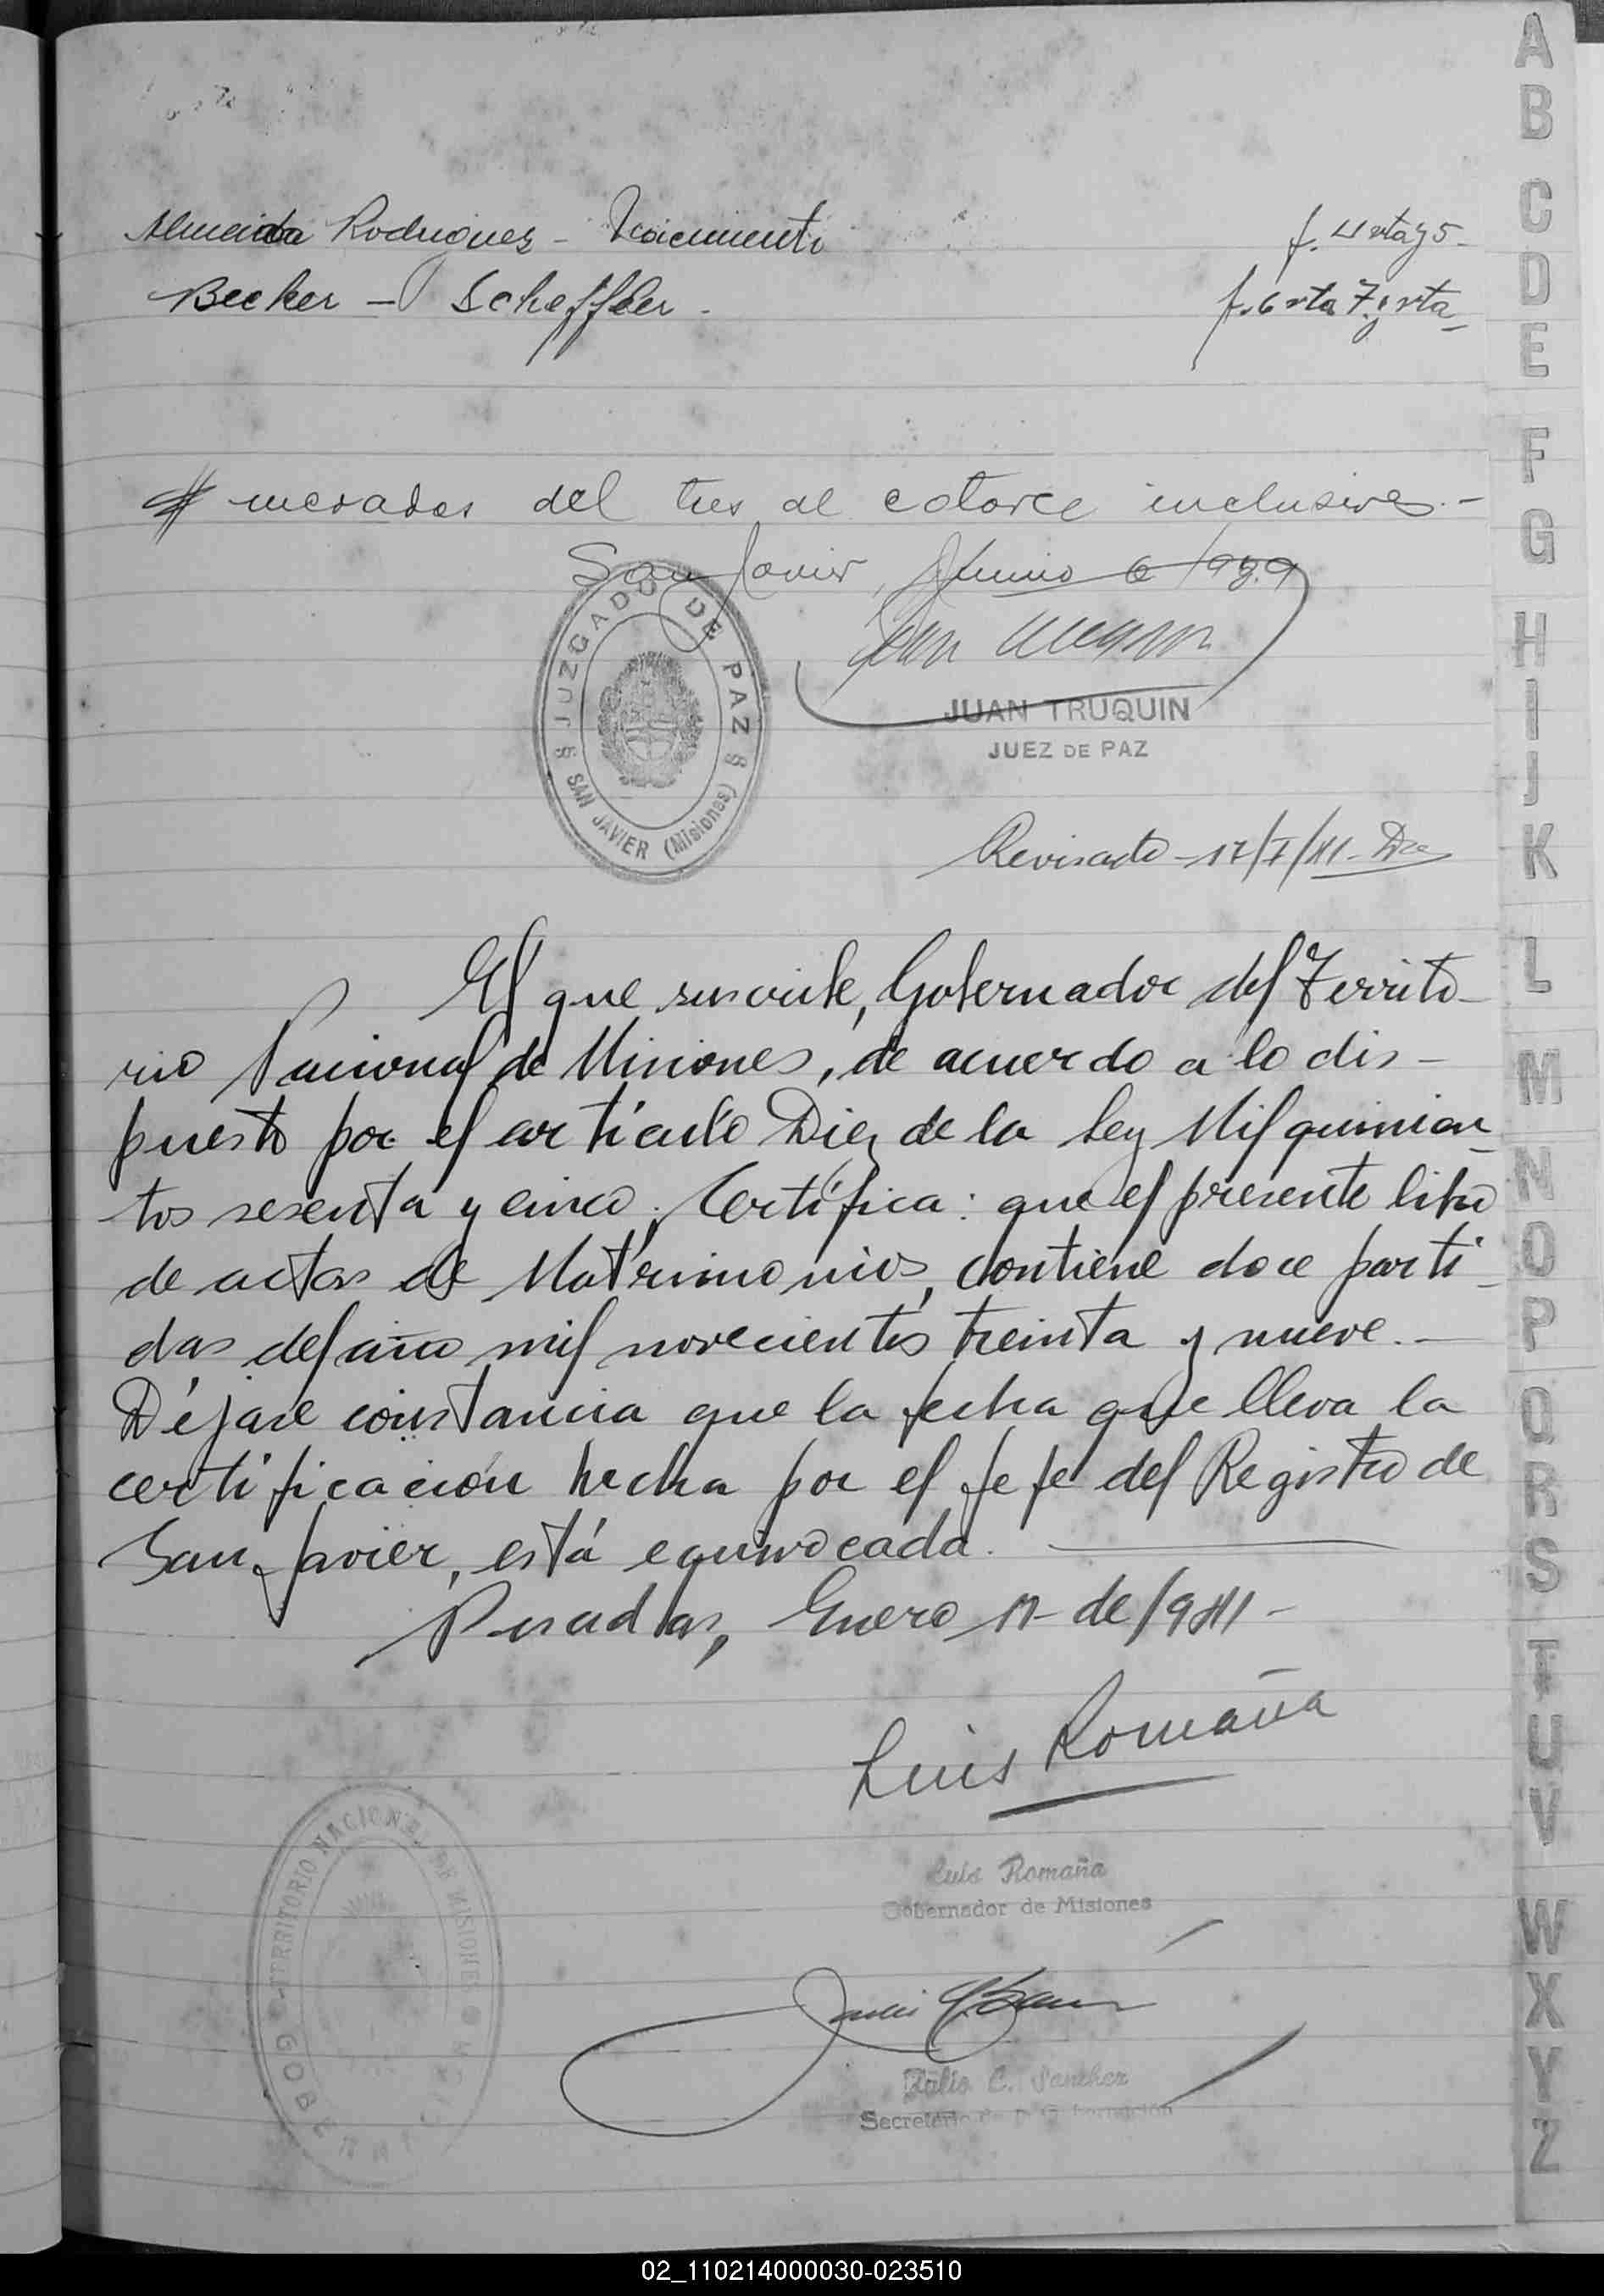 Almeida Rodriguez - Nacimiento f. 4 vta y 5 -
Becker - Scheffler - f. 6 vta 7 y vta -
# merados del tres al catorce inclusives. -
San Javier, Junio 6 1939
JUZGADO DE PAZ
SAN JAVIER (Misiones)
JUAN TRUQUIN
JUEZ DE PAZ
Revisado - 17/I/41 -
El que suscribe, Gobernador del Territo-
rio Nacional de Misiones, de acuerdo a lo dis-
puesto por el artículo Diez de la Ley Mil quinien-
tos sesenta y cinco, Certifica: que el presente libro
de actas de Matrimonios, contiene doce parti-
das del año mil novecientos treinta y nueve. -
Déjase constancia que la fecha que lleva la
certificación hecha por el Jefe del Registro de
San Javier, está equivocada.
Posadas, Enero 17 - de 1941 -
Luis Romaña
Luis Romaña
Gobernador de Misiones
TERRITORIO NACIONAL DE MISIONES
Julio C. Sanchez
Secretario de la Gobernación
A
B
C
D
E
F
G
H
I
J
K
L
M
N
O
P
Q
R
S
T
U
V
W
X
Y
Z
02_110214000030-023510